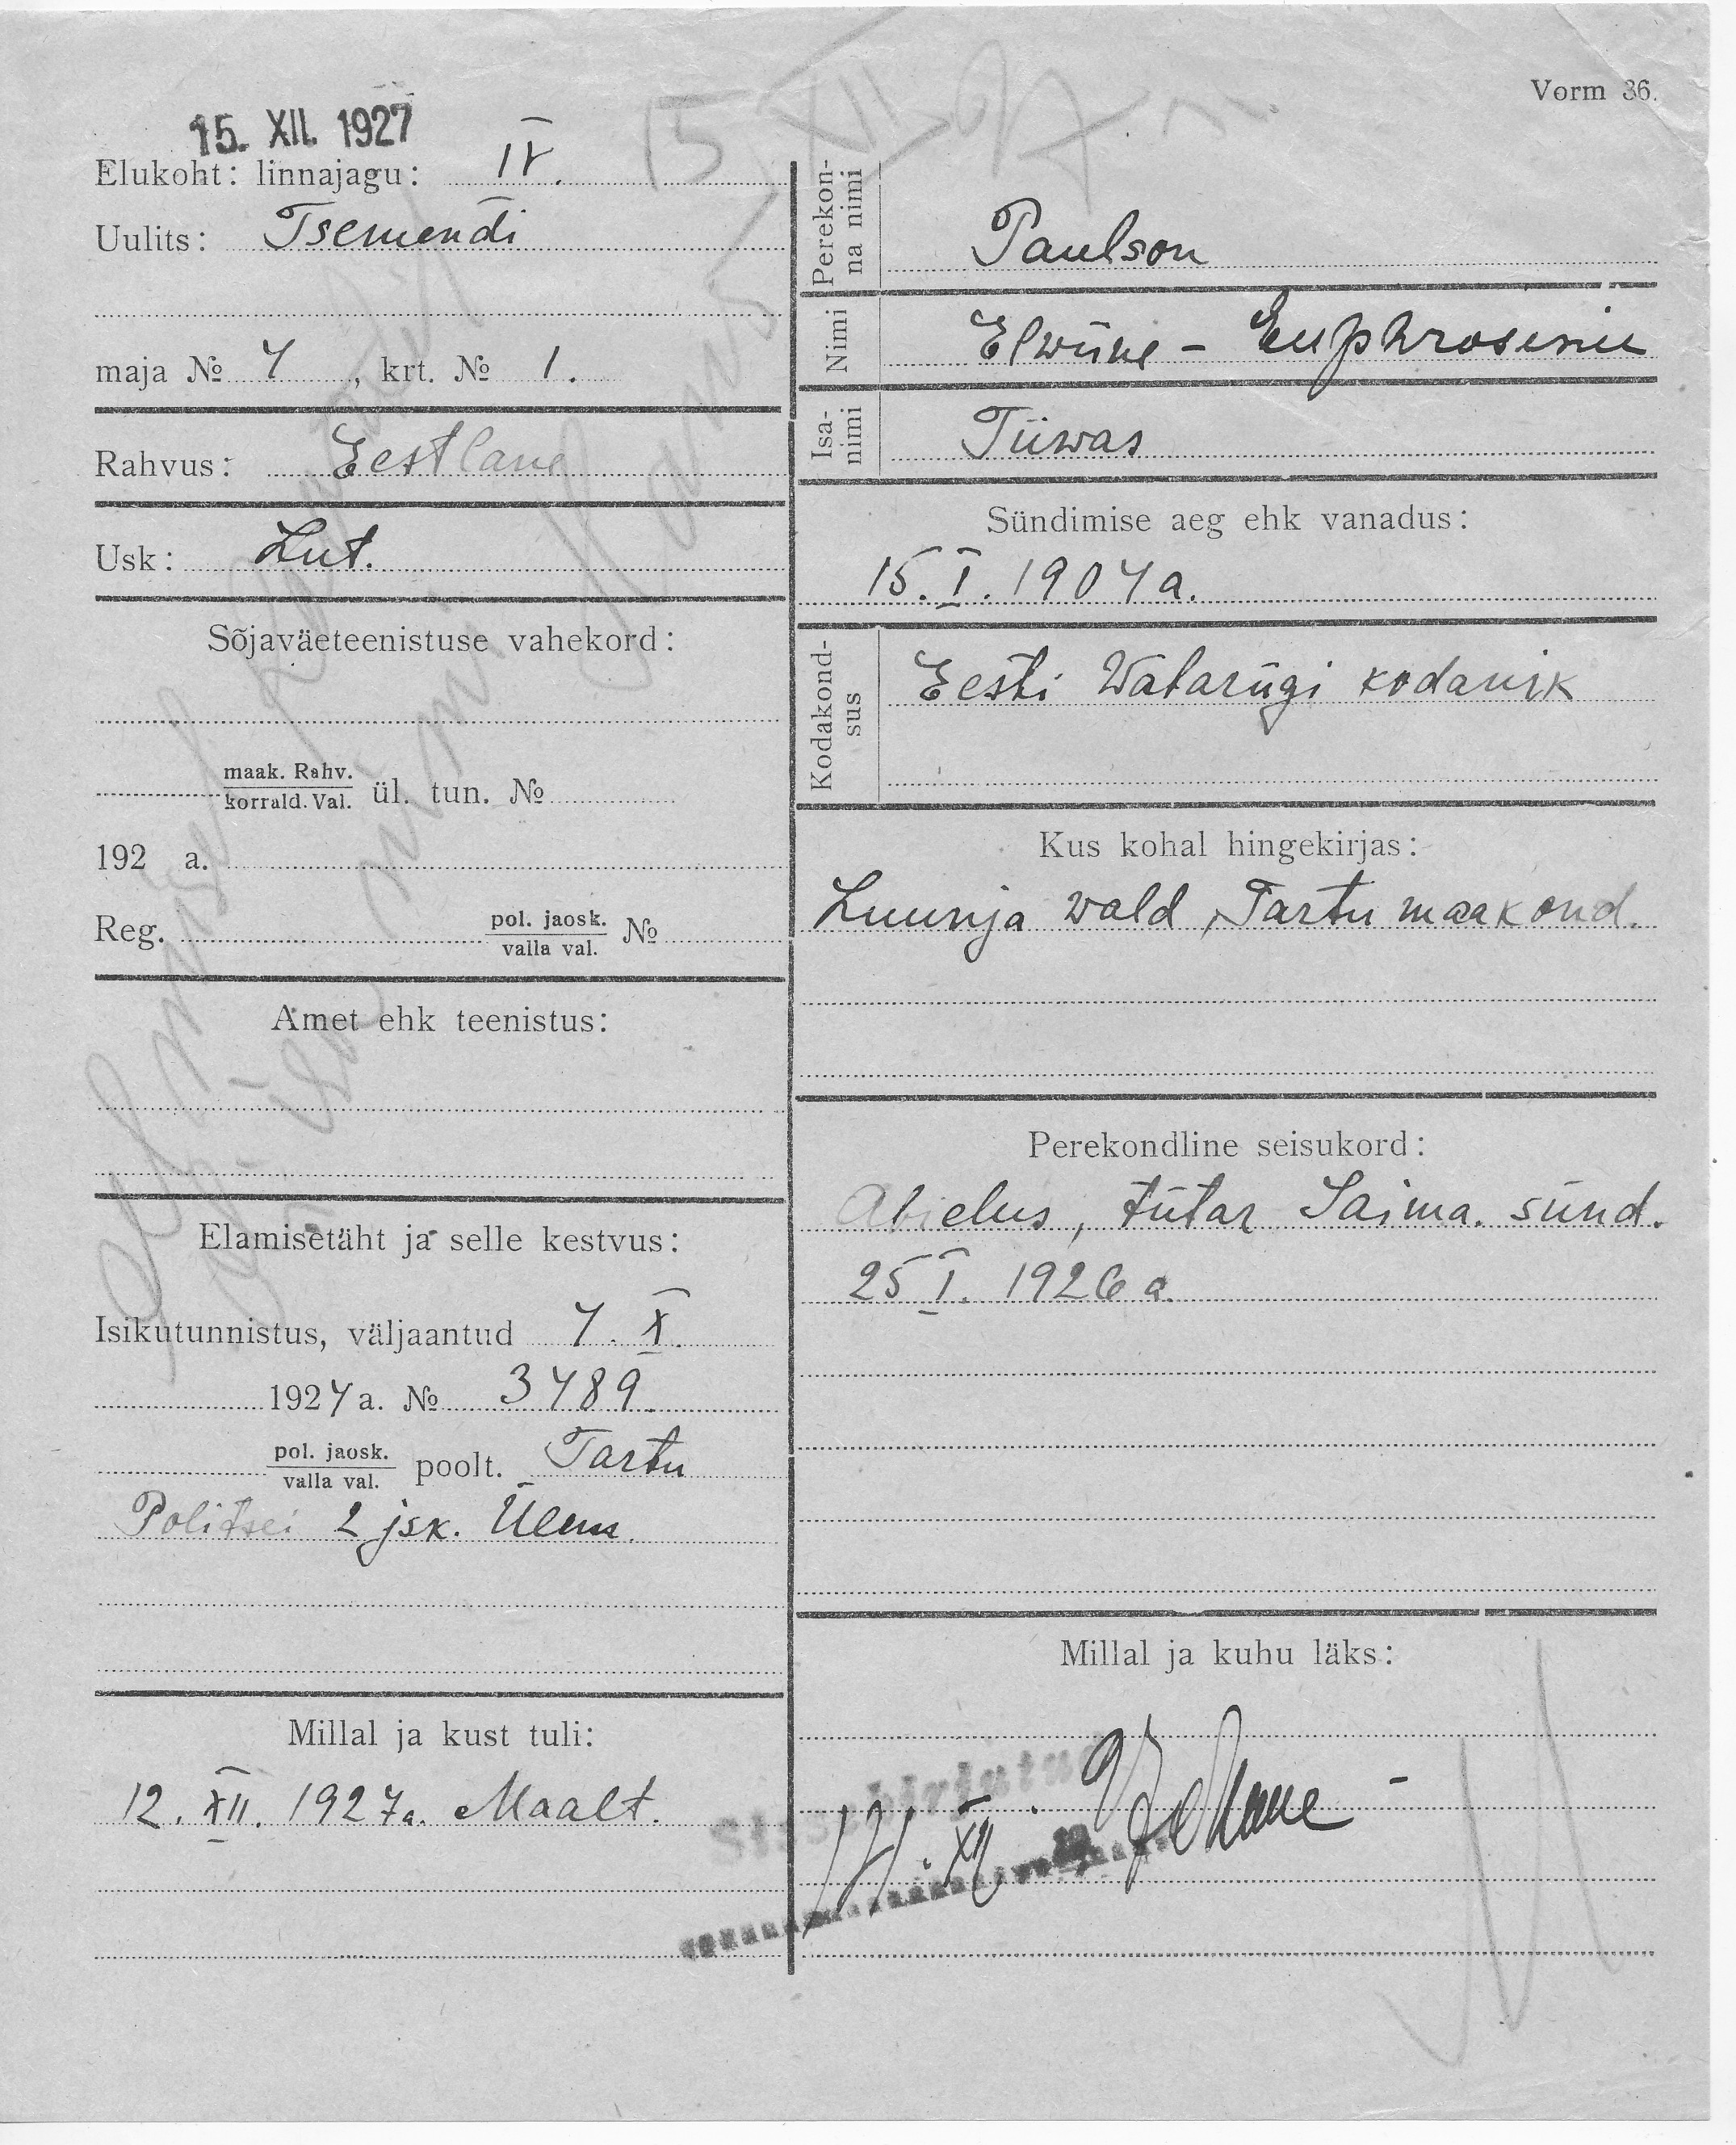 Vorm 36.
15. XII. 1927
Elukoht: linnajagu: IV.
Uulits: Tsemendi
maja № 4, krt. № 1.
Rahvus: Eestlane
Usk: Lut.
Sõjaväeteenistuse vahekord:
maak. Rahv.
korrald. Val. ül. tun. №
192 a.
Reg. pol. jaosk.
valla val. №
Amet ehk teenistus:
Elamisetäht ja selle kestvus:
Isikutunnistus, väljaantud 4. X.
1924 a. № 3489.
pol. jaosk.
valla val. poolt. Tartu
Politsei 2 jsk. Ülem.
Millal ja kust tuli:
12. XII. 1927a. Maalt.
Perekonna nimi
Paulson
Nimi
Elwiine - Euphrosinie
Isanimi
Tiiwas
Sündimise aeg ehk vanadus:
15. I. 1904 a.
Kodakondsus
Eesti Wabariigi kodanik
Kus kohal hingekirjas:
Luunja wald, Tartu maakond.
Perekondline seisukord:
Abielus, tütar Saima. sünd.
25 I. 1926 a.
Millal ja kuhu läks:
Sissekirjutud